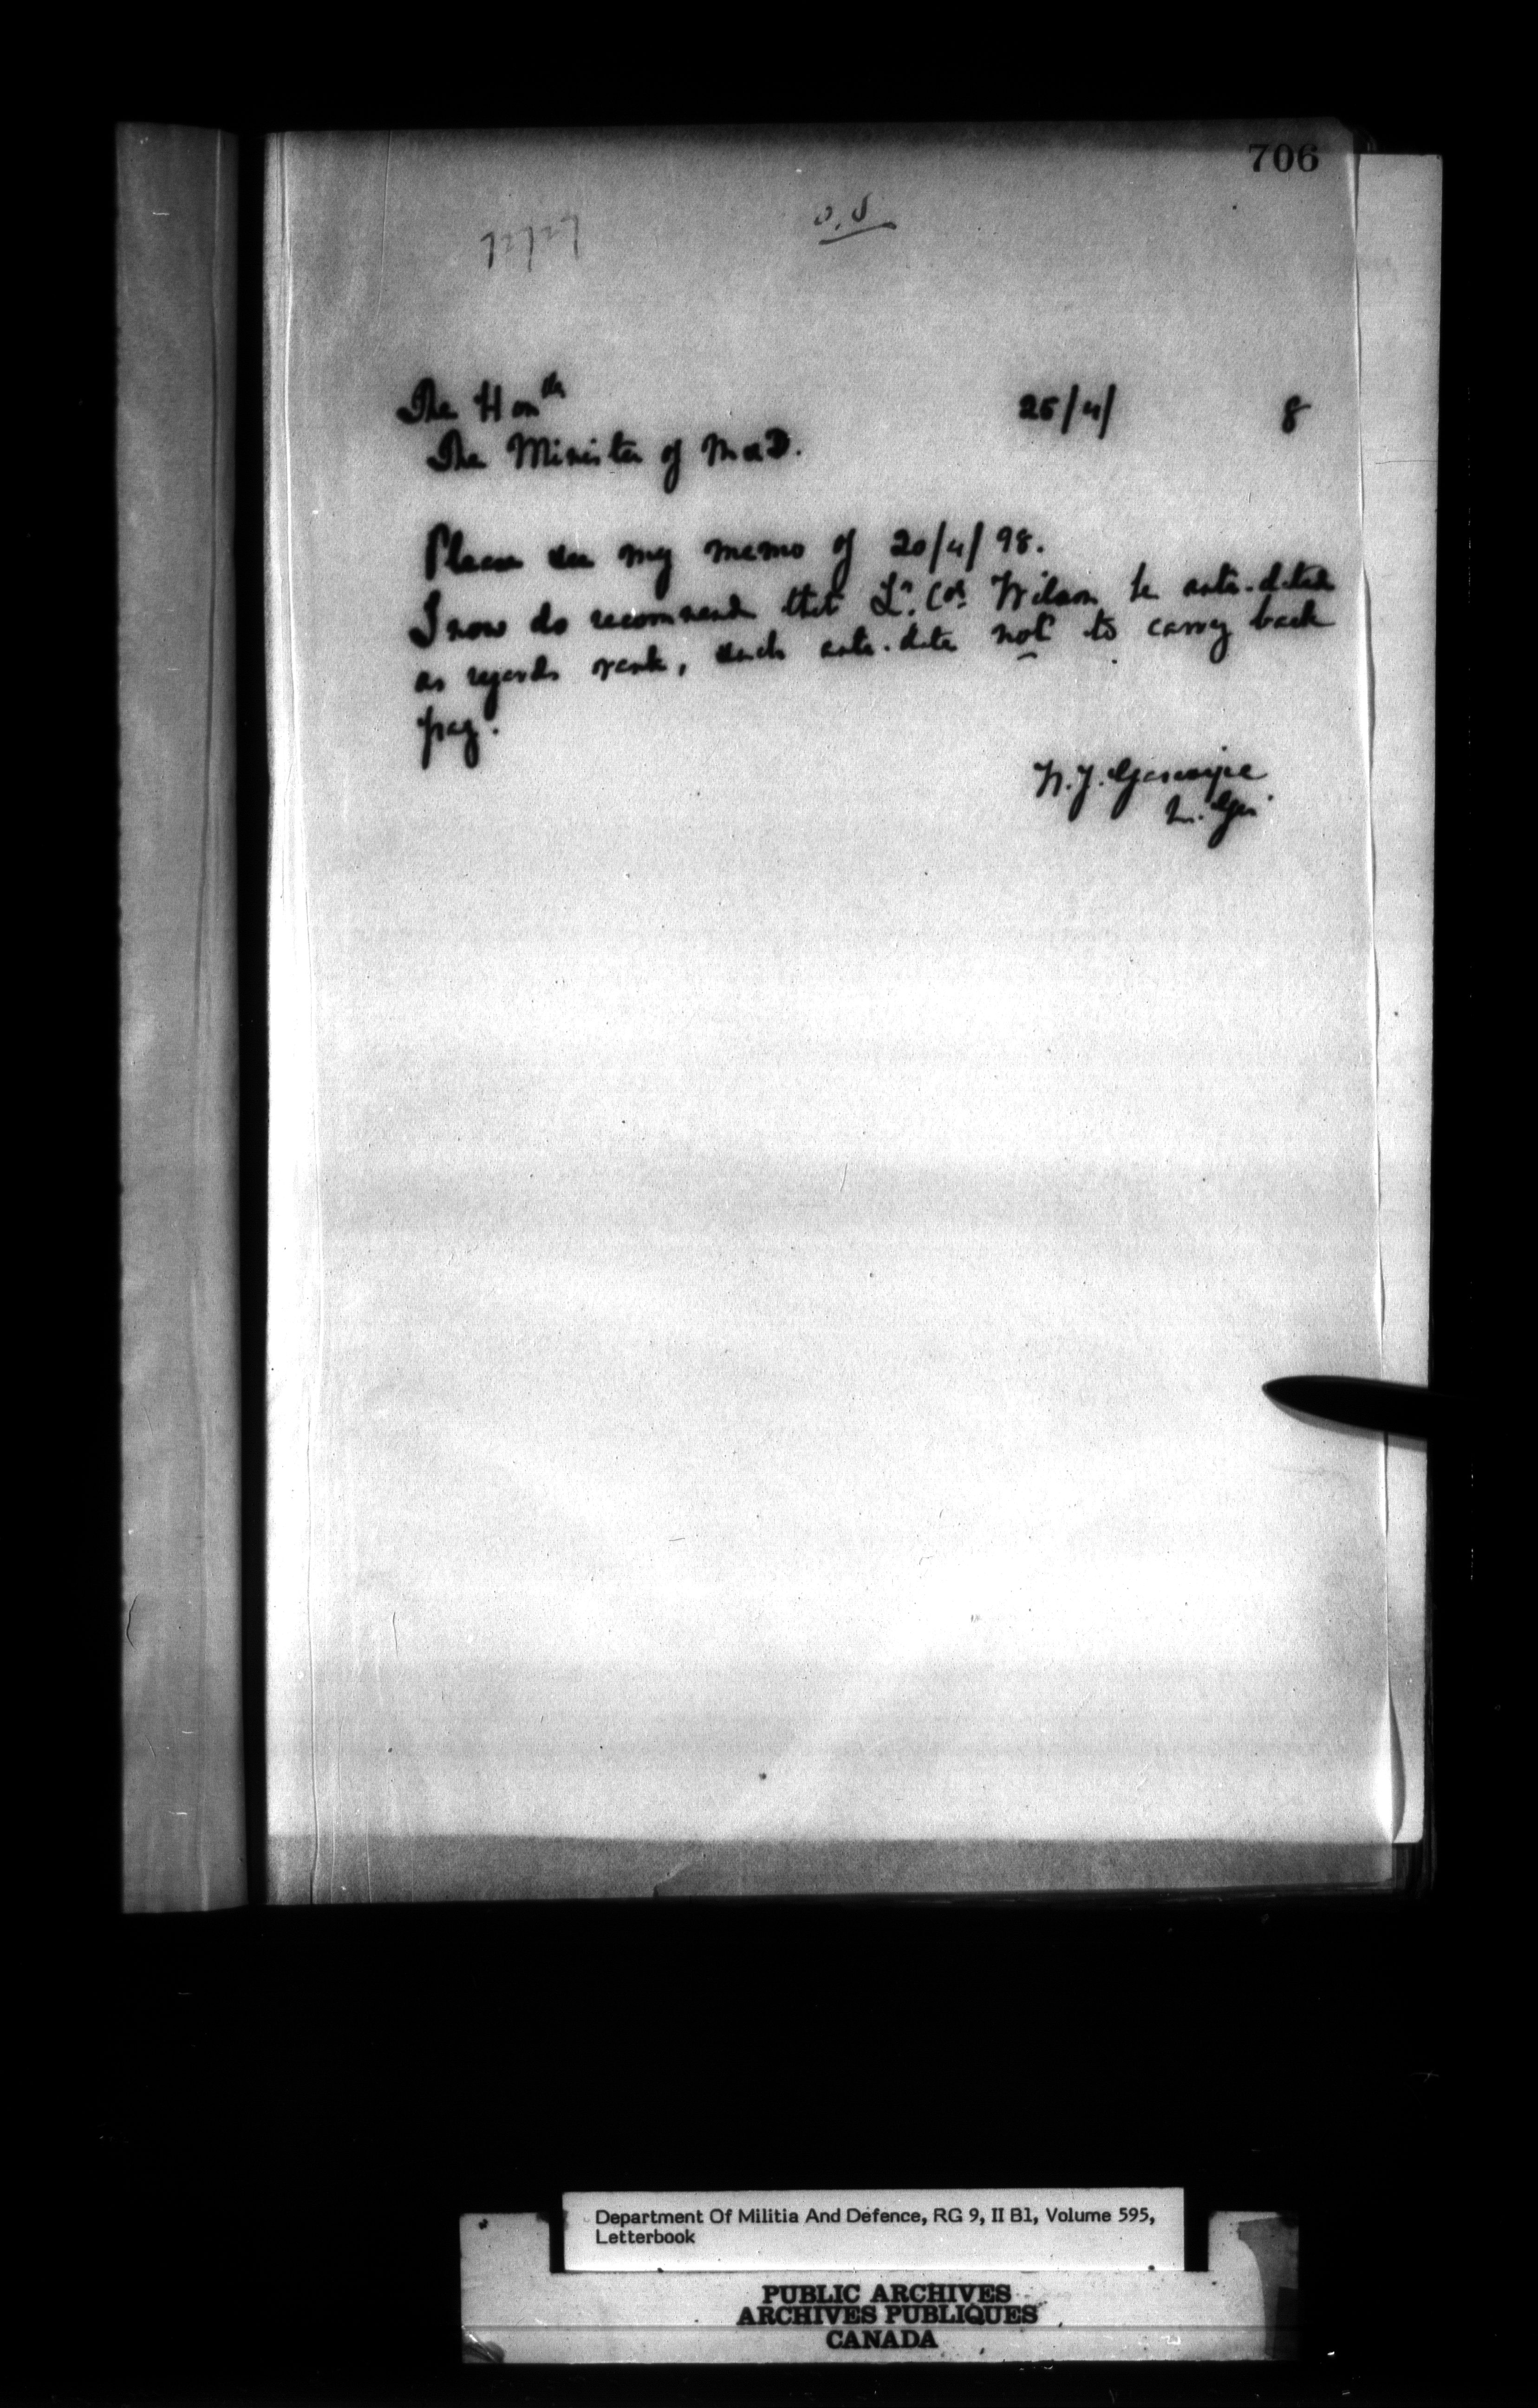 706
72727
The Honble
25/4/ 8
The Minister of M&D.
Please see my memo of 20/4/98.
I now do recommend that Lt. Col. Wilson be ante-dated
as regards rank, such ante-date not to carry back
pay.
W.J. Gascoigne
M. Gen
Department Of Militia And Defence, RG 9, II B1, Volume 595,
Letterbook
PUBLIC ARCHIVES
ARCHIVES PUBLIQUES
CANADA